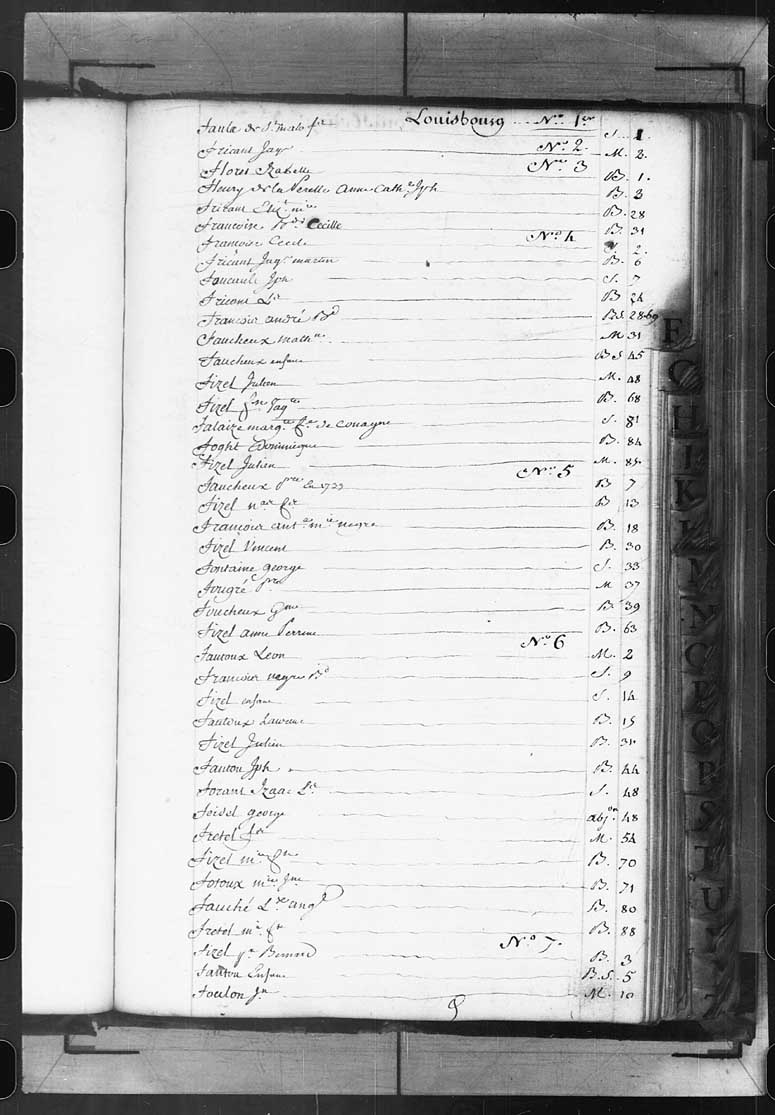 Louisbourg N.o 1er
de St. malo S. 1.
Fricant Jaq N.o 2. M. 2.
Flores Izabelle N.o 3 B. 1.
Henry de la Perelle anne Cath.e Jph B. 3
Fricant M.ie B. 28
Francoise Cecille B. 31
Francoise Cecile N.o 4 S. 2.
Fricant Jaq. martin B. 6
Foucault Jph S. 7
B 24
Francois andré B.S. 28.69
Faucheux math. M 31
Faucheux enfant B S 45
Fizel Julien M. 48
Fizel B. 68
Falaize marg.te f.e de Couagne S. 81
Foght Dominique B. 84
Fizel Julien M. 85.
Faucheux en 1733 N.o 5 B 7
Fizel B 13
Francois ant.e m.ie negre B. 18
Fizel Vincent B. 30
Fontaine george S. 33
Fougré M 37
Foucheux B. 39
Fizel anne Perrine B. 63
Fautoux Leon N.o 6 M. 2
Francois negre S. 9
Fizel enfant S. 14
Fautoux Laurent B. 15
Fizel Julien B. 31
Fautou Jph B. 44
Forant Izaac S. 48
Feidel george abj.on 48
Fretel M. 54
Fizel B. 70
Foroux B. 71
Fauché ang B. 80
Fretel B. 88
Fizel Bernard N.o 7. B. 3
Fautou Enfant B.S. 5
Foulon M. 10
F
G
H
I
K
L
M
N
O
P
Q
R
S
T
U